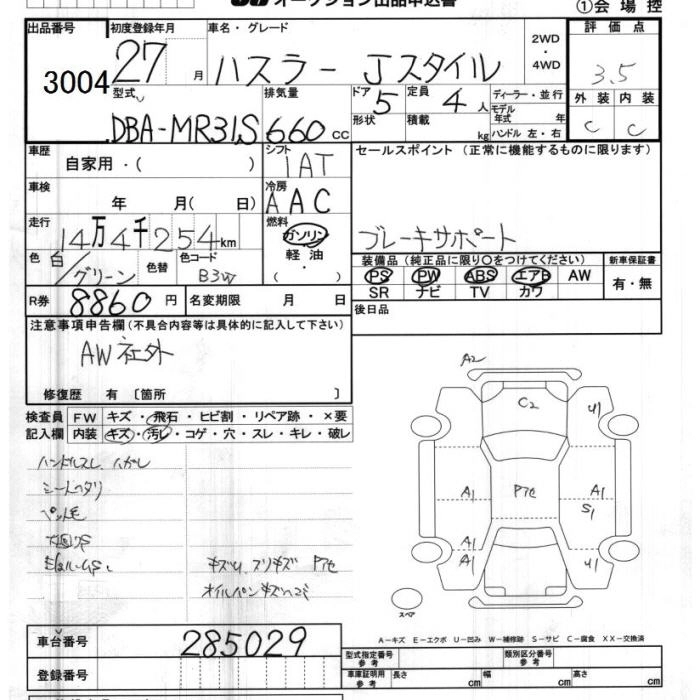 オークション出品申込書
①会場控
出品番号
3004
初度登録年月
27 月
車名・グレード
ハスラー Jスタイル
2WD
・4WD
評価点
3.5
外装 内装
C C
型式
DBA-MR31S
排気量
660 CC
ドア
5
形状
定員
4 人
積載
kg
ディーラー・並行
モデル年式 年
ハンドル 左・右
車歴
自家用・( )
シフト
IAT
セールスポイント (正常に機能するものに限ります)
ブレーキサポート
車検
年 月( 日)
冷房
AAC
走行
14万4千254km
燃料
ガソリン
軽油
( )
色
白/グリーン
色替
色コード
B3W
R券
8860円
名変期限 月 日
装備品 (純正品に限り○をつけてください)
PS PW ABS エアB AW
SR ナビ TV カワ
新車保証書
有・無
後日品
注意事項申告欄(不具合内容等は具体的に記入して下さい)
AW社外
修復歴 有〔箇所 〕
検査員記入欄
FW キズ・飛石・ヒビ割・リペア跡・×要
内装 キズ・汚レ・コゲ・穴・スレ・キレ・破レ
ハンドルスレ、ハガレ
シートヘタリ
ペット毛
キズU、スリキズ Pセ
オイルパンキズヘコミ
A2
C2
U1
A1
Pセ
A1
S1
A1
A1
U1
スペア
A-キズ E-エクボ U-凹み W-補修跡 S-サビ C-腐食 XX-交換済
車台番号
285029
登録番号
型式指定番号
参考
類別区分番号
参考
車庫証明用
参考
長さ cm
幅 cm
高さ cm